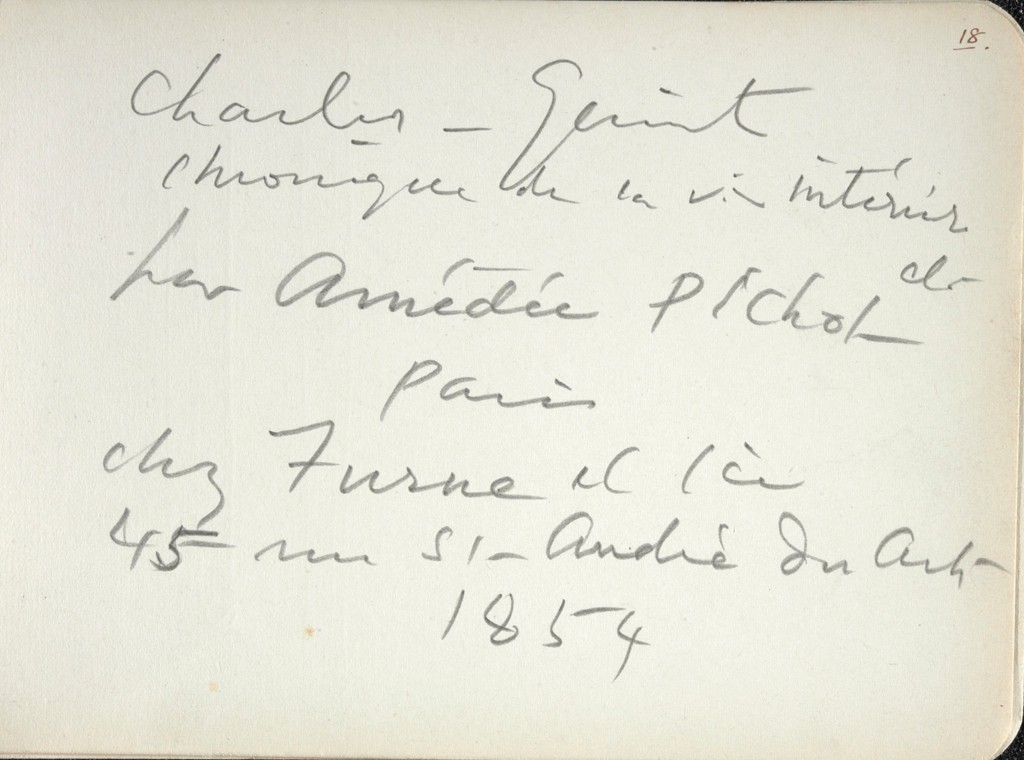 18.
Charles-Quint
chronique de sa vie intérieure
etc
par Amédée Pichot
Paris
chez Furne et Cie
45 rue St-André des Arts
1854